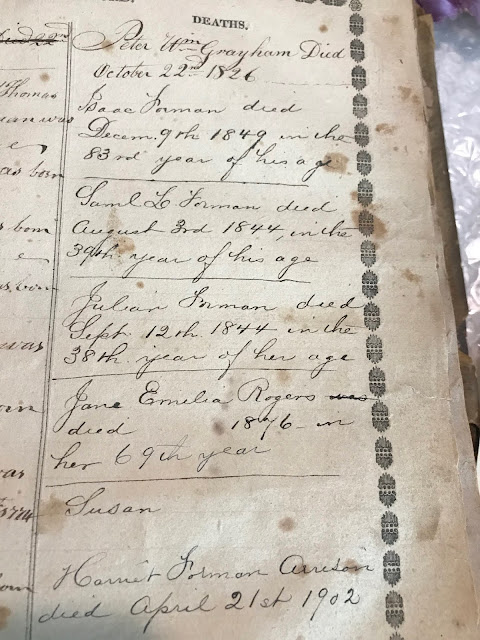 DEATHS.
Peter Wm Grayham Died
October 22nd 1826
Isaac Forman died
Decem. 9th 1849 in the
83rd year of his age
Saml L Forman died
August 3rd 1844, in the
39th year of his age
Julian Forman died
Sept. 12th 1844 in the
38th year of her age
Jane Emelia Rogers was
died 1876 in
her 69th year
Susan
Harriet Forman Arrison
died April 21st 1902
22nd
Thomas
was
e
as born
born
e
was
was